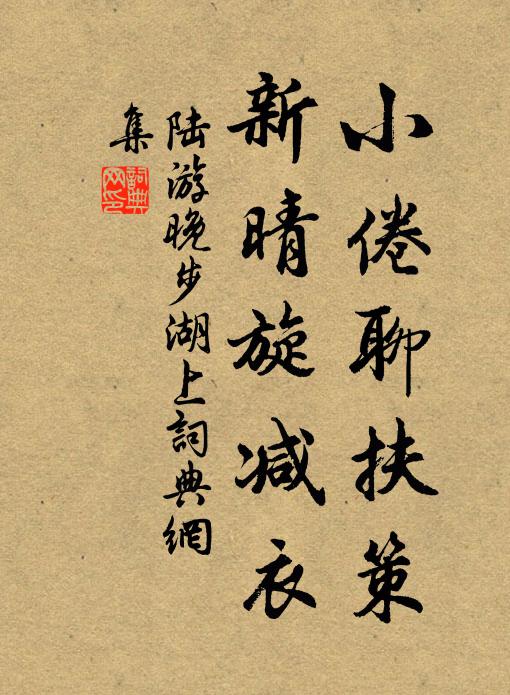 小倦聊扶策
新晴旋减衣
陆游晚步湖上詞典網
集
詞典
网印